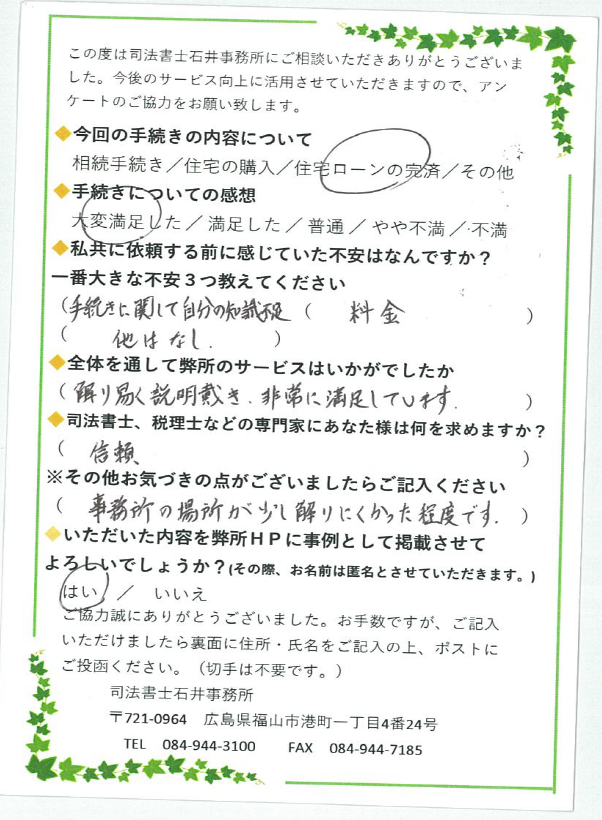 この度は司法書士石井事務所にご相談いただきありがとうございま
した。今後のサービス向上に活用させていただきますので、アン
ケートのご協力をお願い致します。
◆今回の手続きの内容について
相続手続き／住宅の購入／住宅ローンの完済／その他
◆手続きについての感想
大変満足した / 満足した / 普通 / やや不満 / 不満
◆私共に依頼する前に感じていた不安はなんですか？
一番大きな不安３つ教えてください
(手続きに関して自分の知識不足 ( 料金 )
( 他はなし. )
◆全体を通して弊所のサービスはいかがでしたか
( 解り易く説明戴き、非常に満足しています. )
◆司法書士、税理士などの専門家にあなた様は何を求めますか？
( 信頼 )
※その他お気づきの点がございましたらご記入ください
( 事務所の場所が少し解りにくかった程度です. )
◆いただいた内容を弊所ＨＰに事例として掲載させて
よろしいでしょうか？(その際、お名前は匿名とさせていただきます。)
はい ／ いいえ
ご協力誠にありがとうございました。お手数ですが、ご記入
いただけましたら裏面に住所・氏名をご記入の上、ポストに
ご投函ください。（切手は不要です。）
司法書士石井事務所
〒721-0964 広島県福山市港町一丁目4番24号
TEL 084-944-3100 FAX 084-944-7185